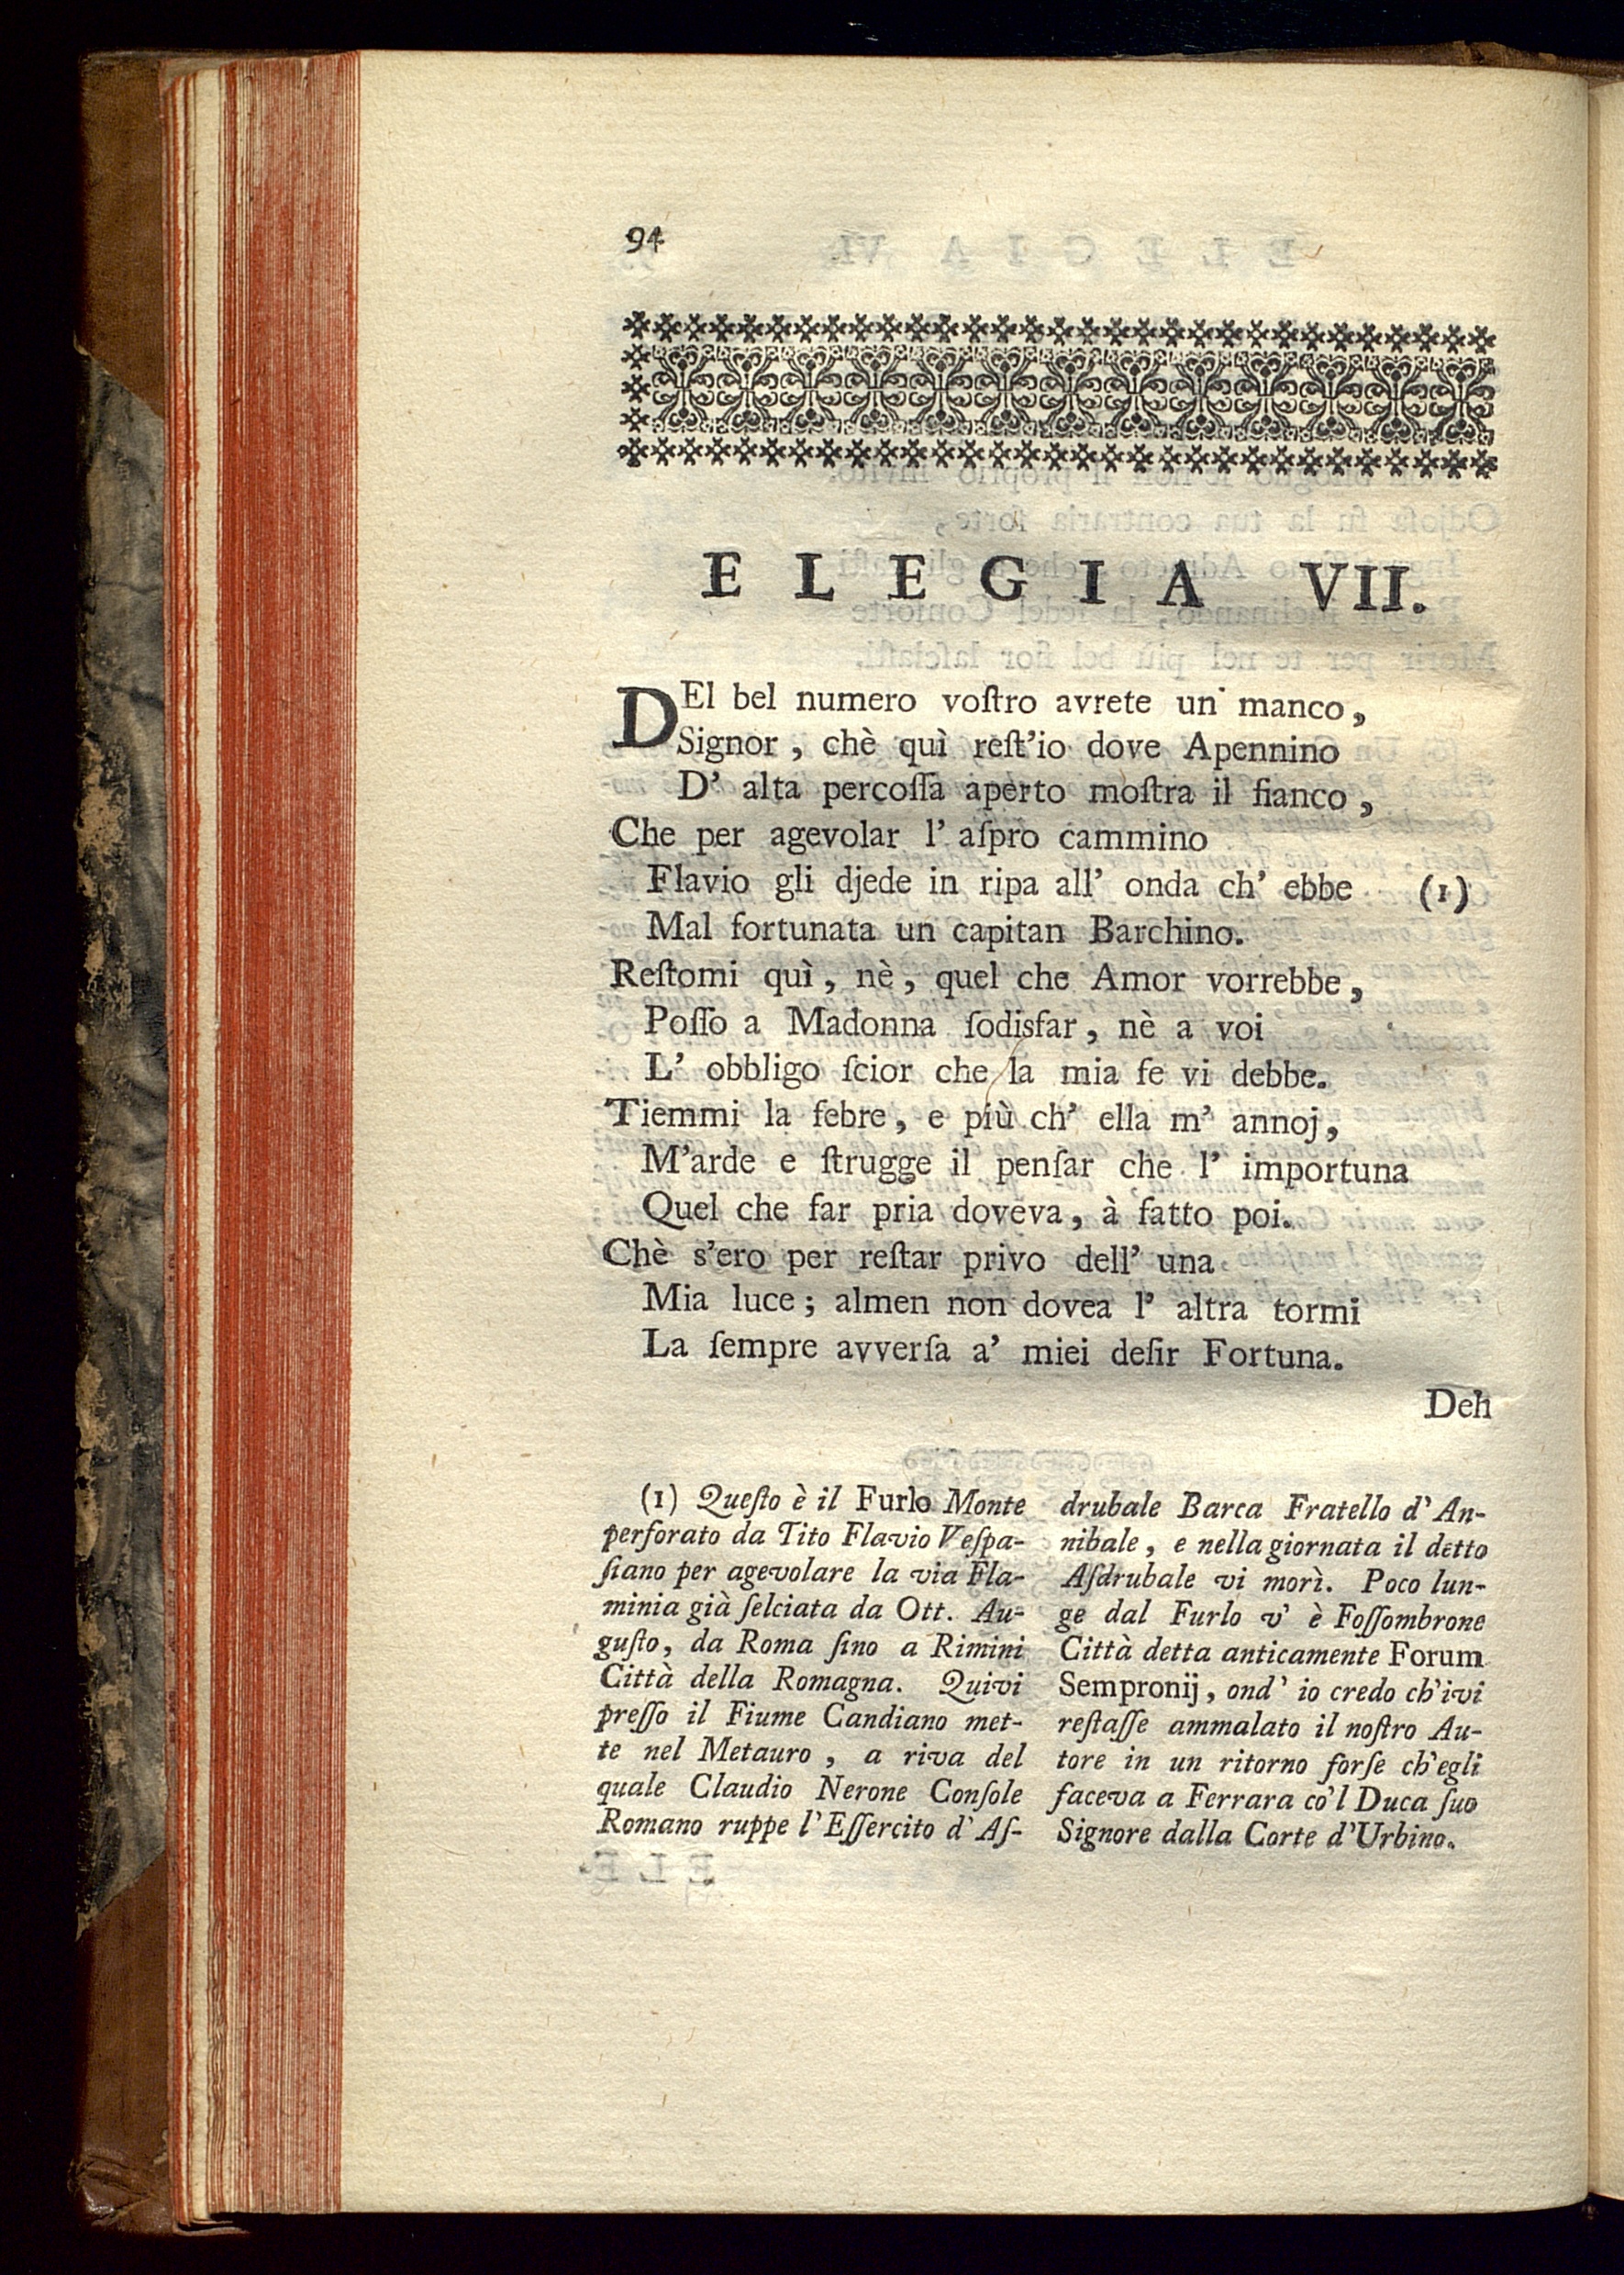 94
ELEGIA VII.
DEl bel numero voſtro avrete un manco,
Signor, chè quì reſt'io dove Apennino
D' alta percoſſa aperto moſtra il fianco,
Che per agevolar l' aſpro cammino
Flavio gli djede in ripa all' onda ch' ebbe (1)
Mal fortunata un capitan Barchino.
Reſtomi quì, nè, quel che Amor vorrebbe,
Poſſo a Madonna ſodisfar, nè a voi
L' obbligo ſcior che la mia fe vi debbe.
Tiemmi la febre, e più ch' ella m' annoj,
M'arde e ſtrugge il penſar che l' importuna
Quel che far pria doveva, à fatto poi.
Chè s'ero per reſtar privo dell' una
Mia luce; almen non dovea l' altra tormi
La ſempre avverſa a' miei deſir Fortuna.
Deh
(1) Queſto è il Furlo Monte
perforato da Tito Flavio Veſpa-
ſiano per agevolare la via Fla-
minia già ſelciata da Ott. Au-
guſto, da Roma ſino a Rimini
Città della Romagna. Quivi
preſſo il Fiume Candiano met-
te nel Metauro, a riva del
quale Claudio Nerone Conſole
Romano ruppe l'Eſſercito d' Aſ-
drubale Barca Fratello d' An-
nibale, e nella giornata il detto
Aſdrubale vi morì. Poco lun-
ge dal Furlo v' è Foſſombrone
Città detta anticamente Forum
Sempronij, ond' io credo ch'ivi
reſtaſſe ammalato il noſtro Au-
tore in un ritorno forſe ch'egli
faceva a Ferrara co'l Duca ſuo
Signore dalla Corte d'Urbino.